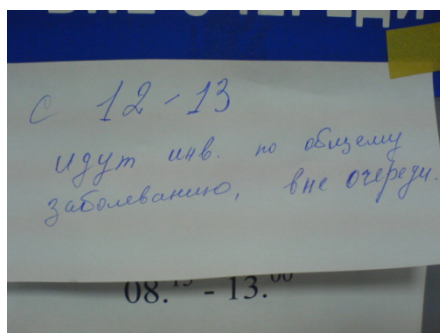 ВНЕ ОЧЕРЕДИ
с 12-13
идут инв. по общему
заболеванию, вне очереди.
08.15 - 13.00